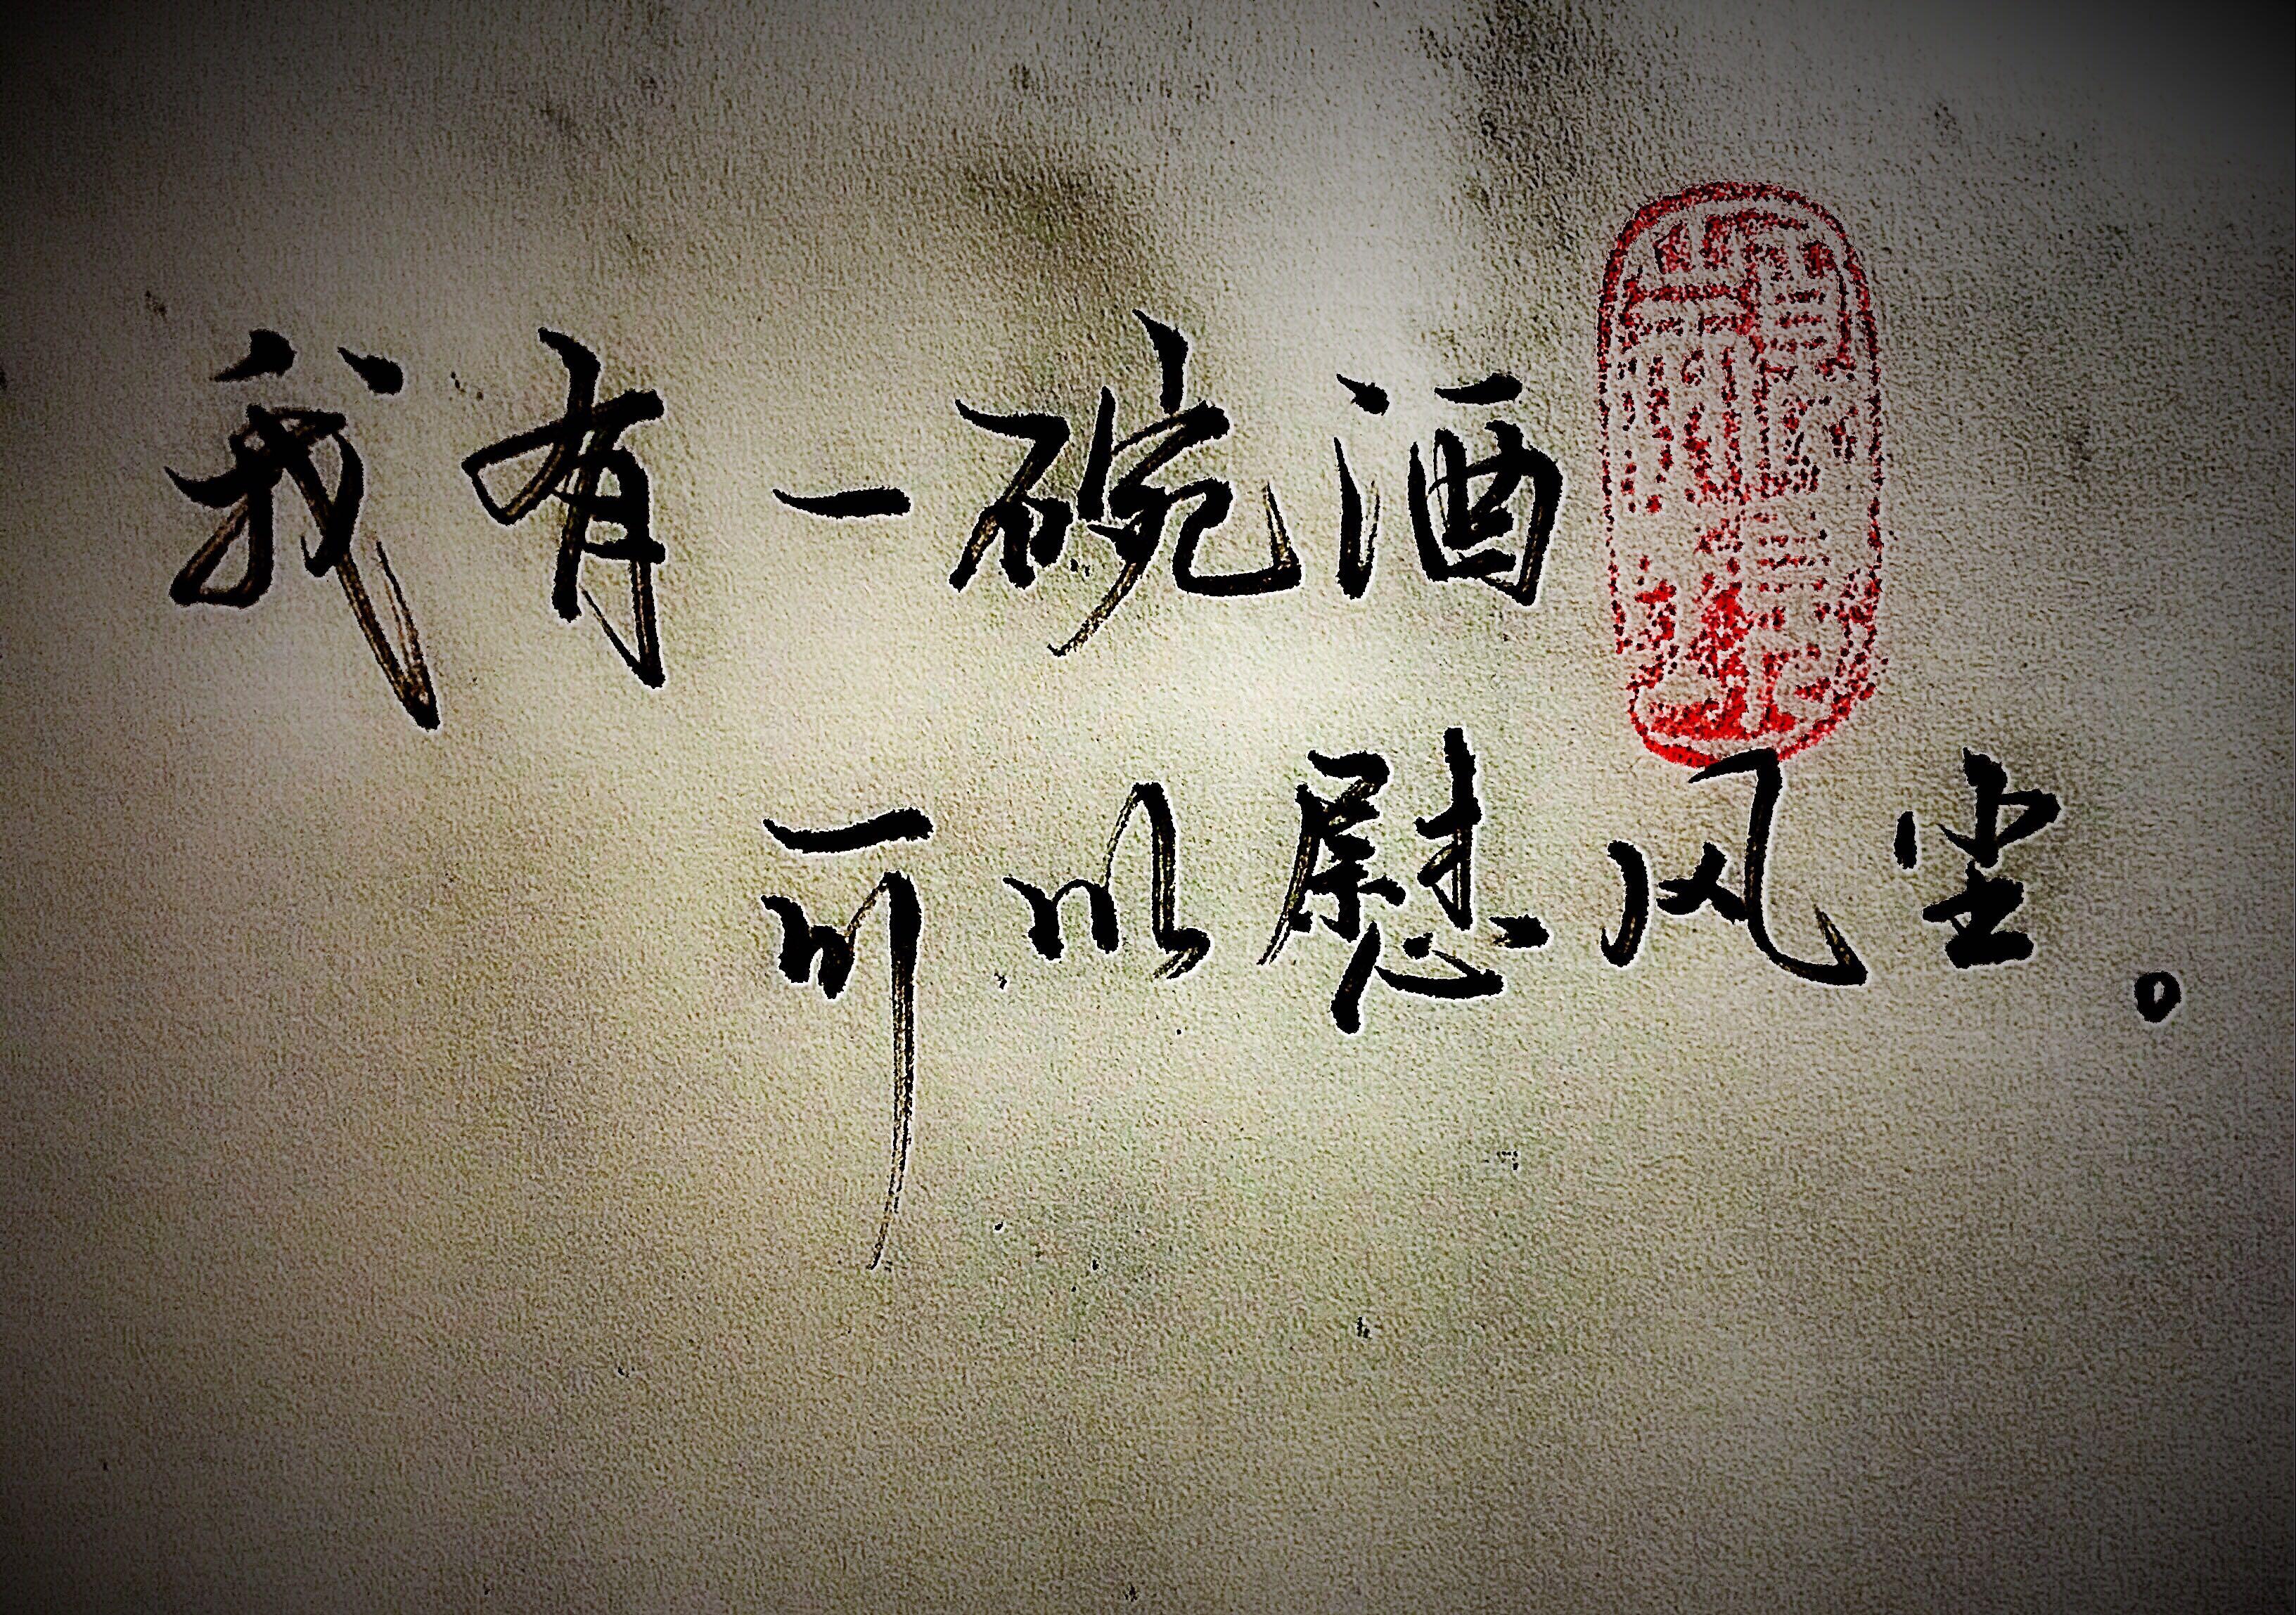 我有一碗酒
可以慰风尘。